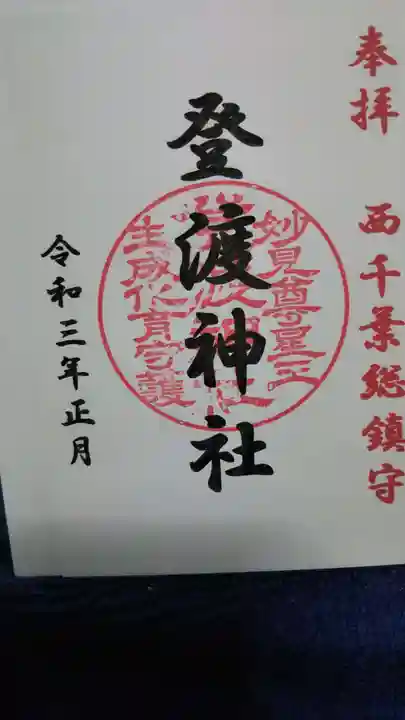 奉拝 西千葉総鎮守
登渡神社
妙見尊星王
生成化育守護
令和三年正月